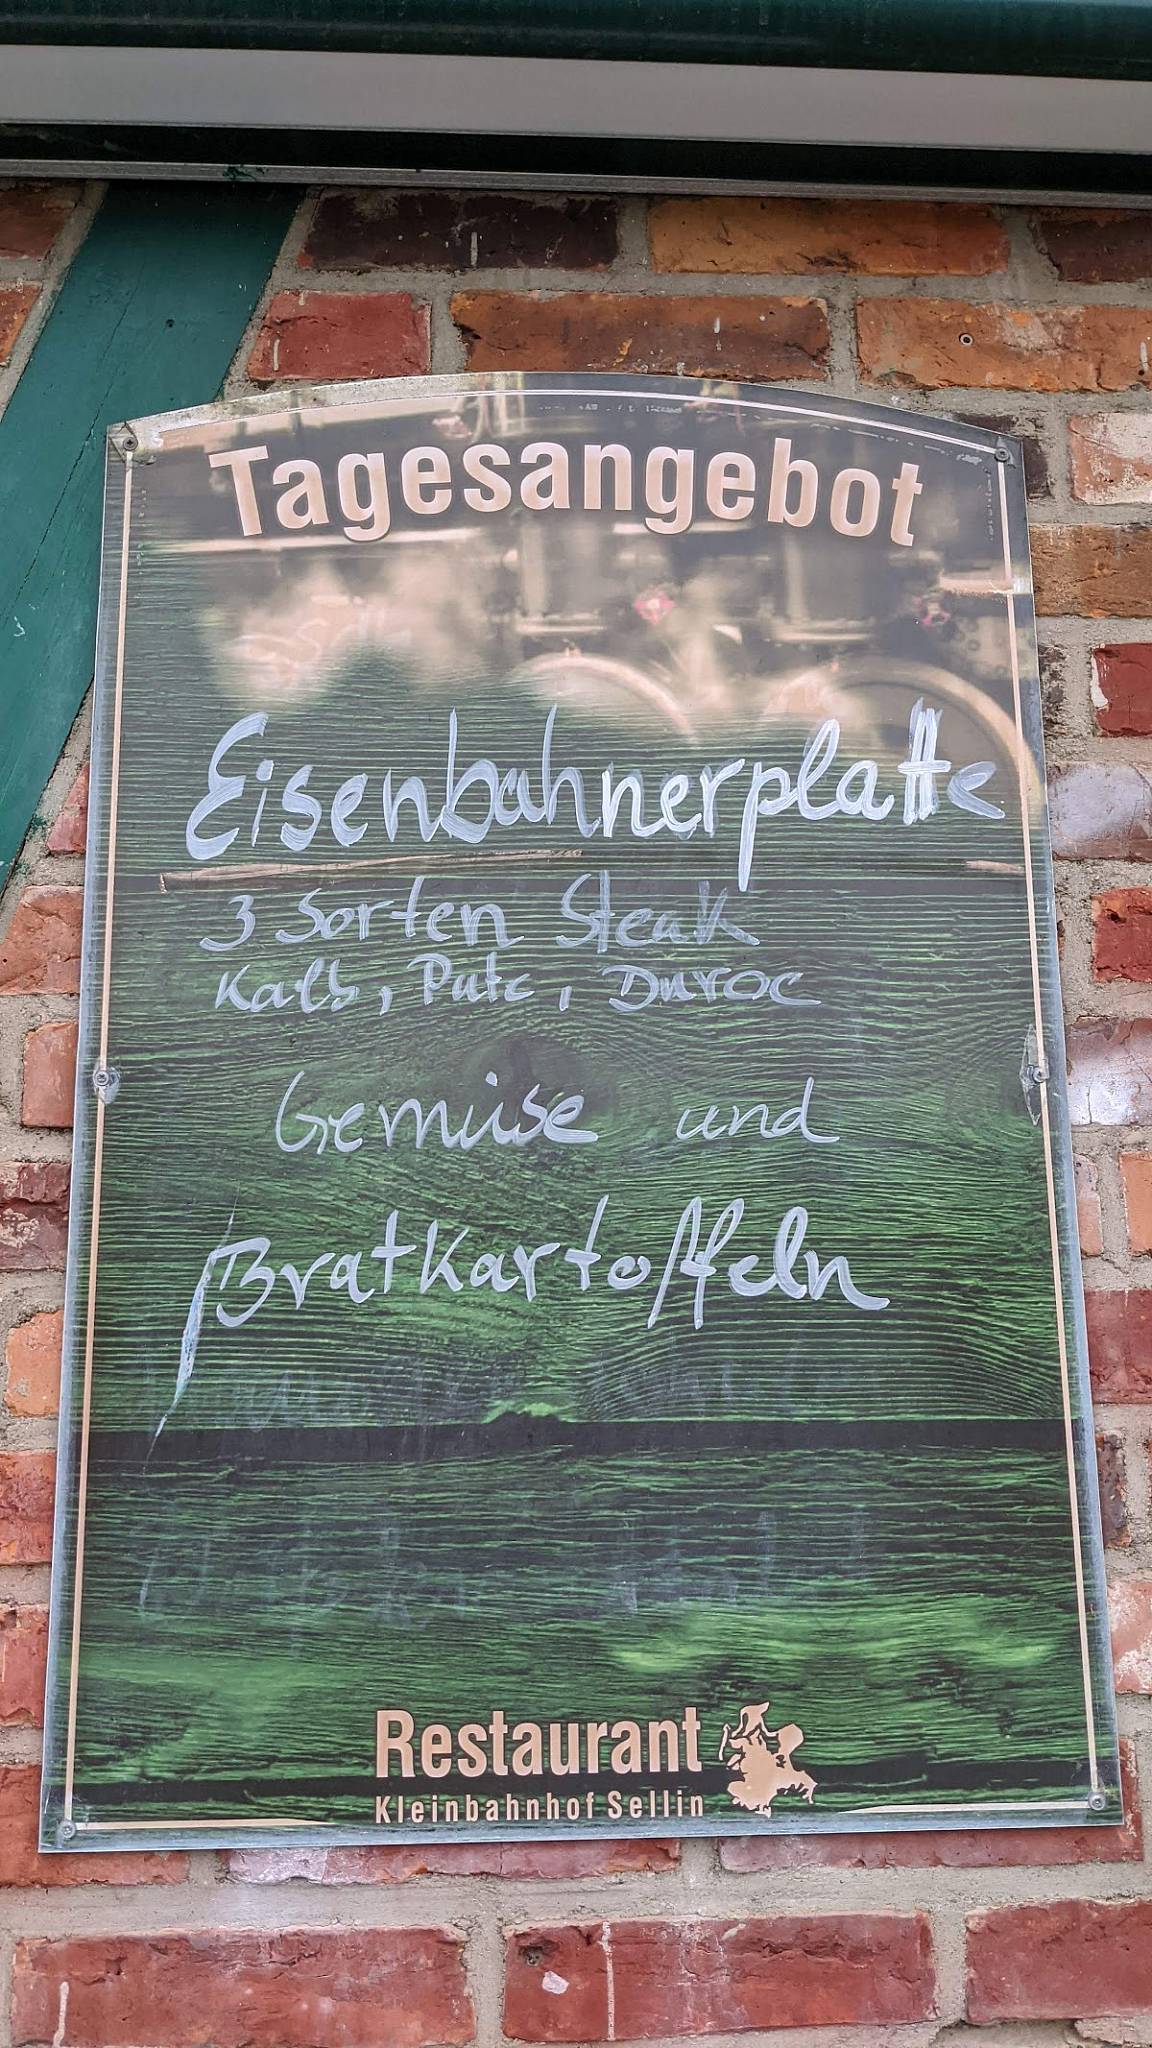 Tagesangebot
Eisenbahnerplatte
3 Sorten Steak
Kalb, Pute, Duroc
Gemüse und
Bratkartoffeln
Restaurant
Kleinbahnhof Sellin